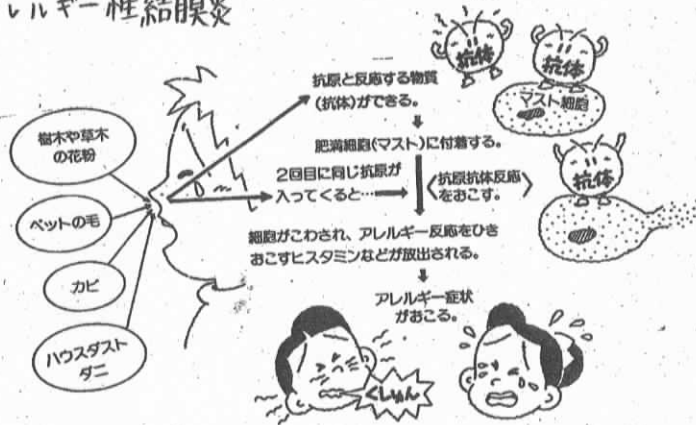 レルギー性結膜炎
樹木や草木
の花粉
ペットの毛
カビ
ハウスダスト
ダニ
抗原と反応する物質
(抗体)ができる。
肥満細胞(マスト)に付着する。
2回目に同じ抗原が
入ってくると…
抗原抗体反応
をおこす。
細胞がこわされ、アレルギー反応をひき
おこすヒスタミンなどが放出される。
アレルギー症状
がおこる。
抗体
抗体
マスト細胞
抗体
くしゅん